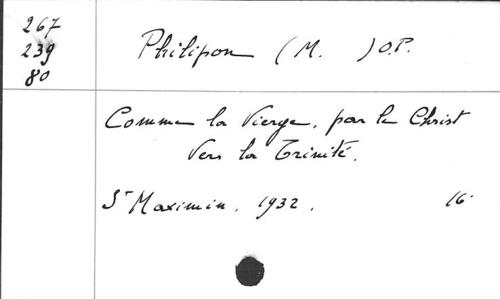 267
239
80
Philipon (M. ) O.P.
Comme la Vierge, par le Christ
vers la Trinité.
St Maximin. 1932. 16